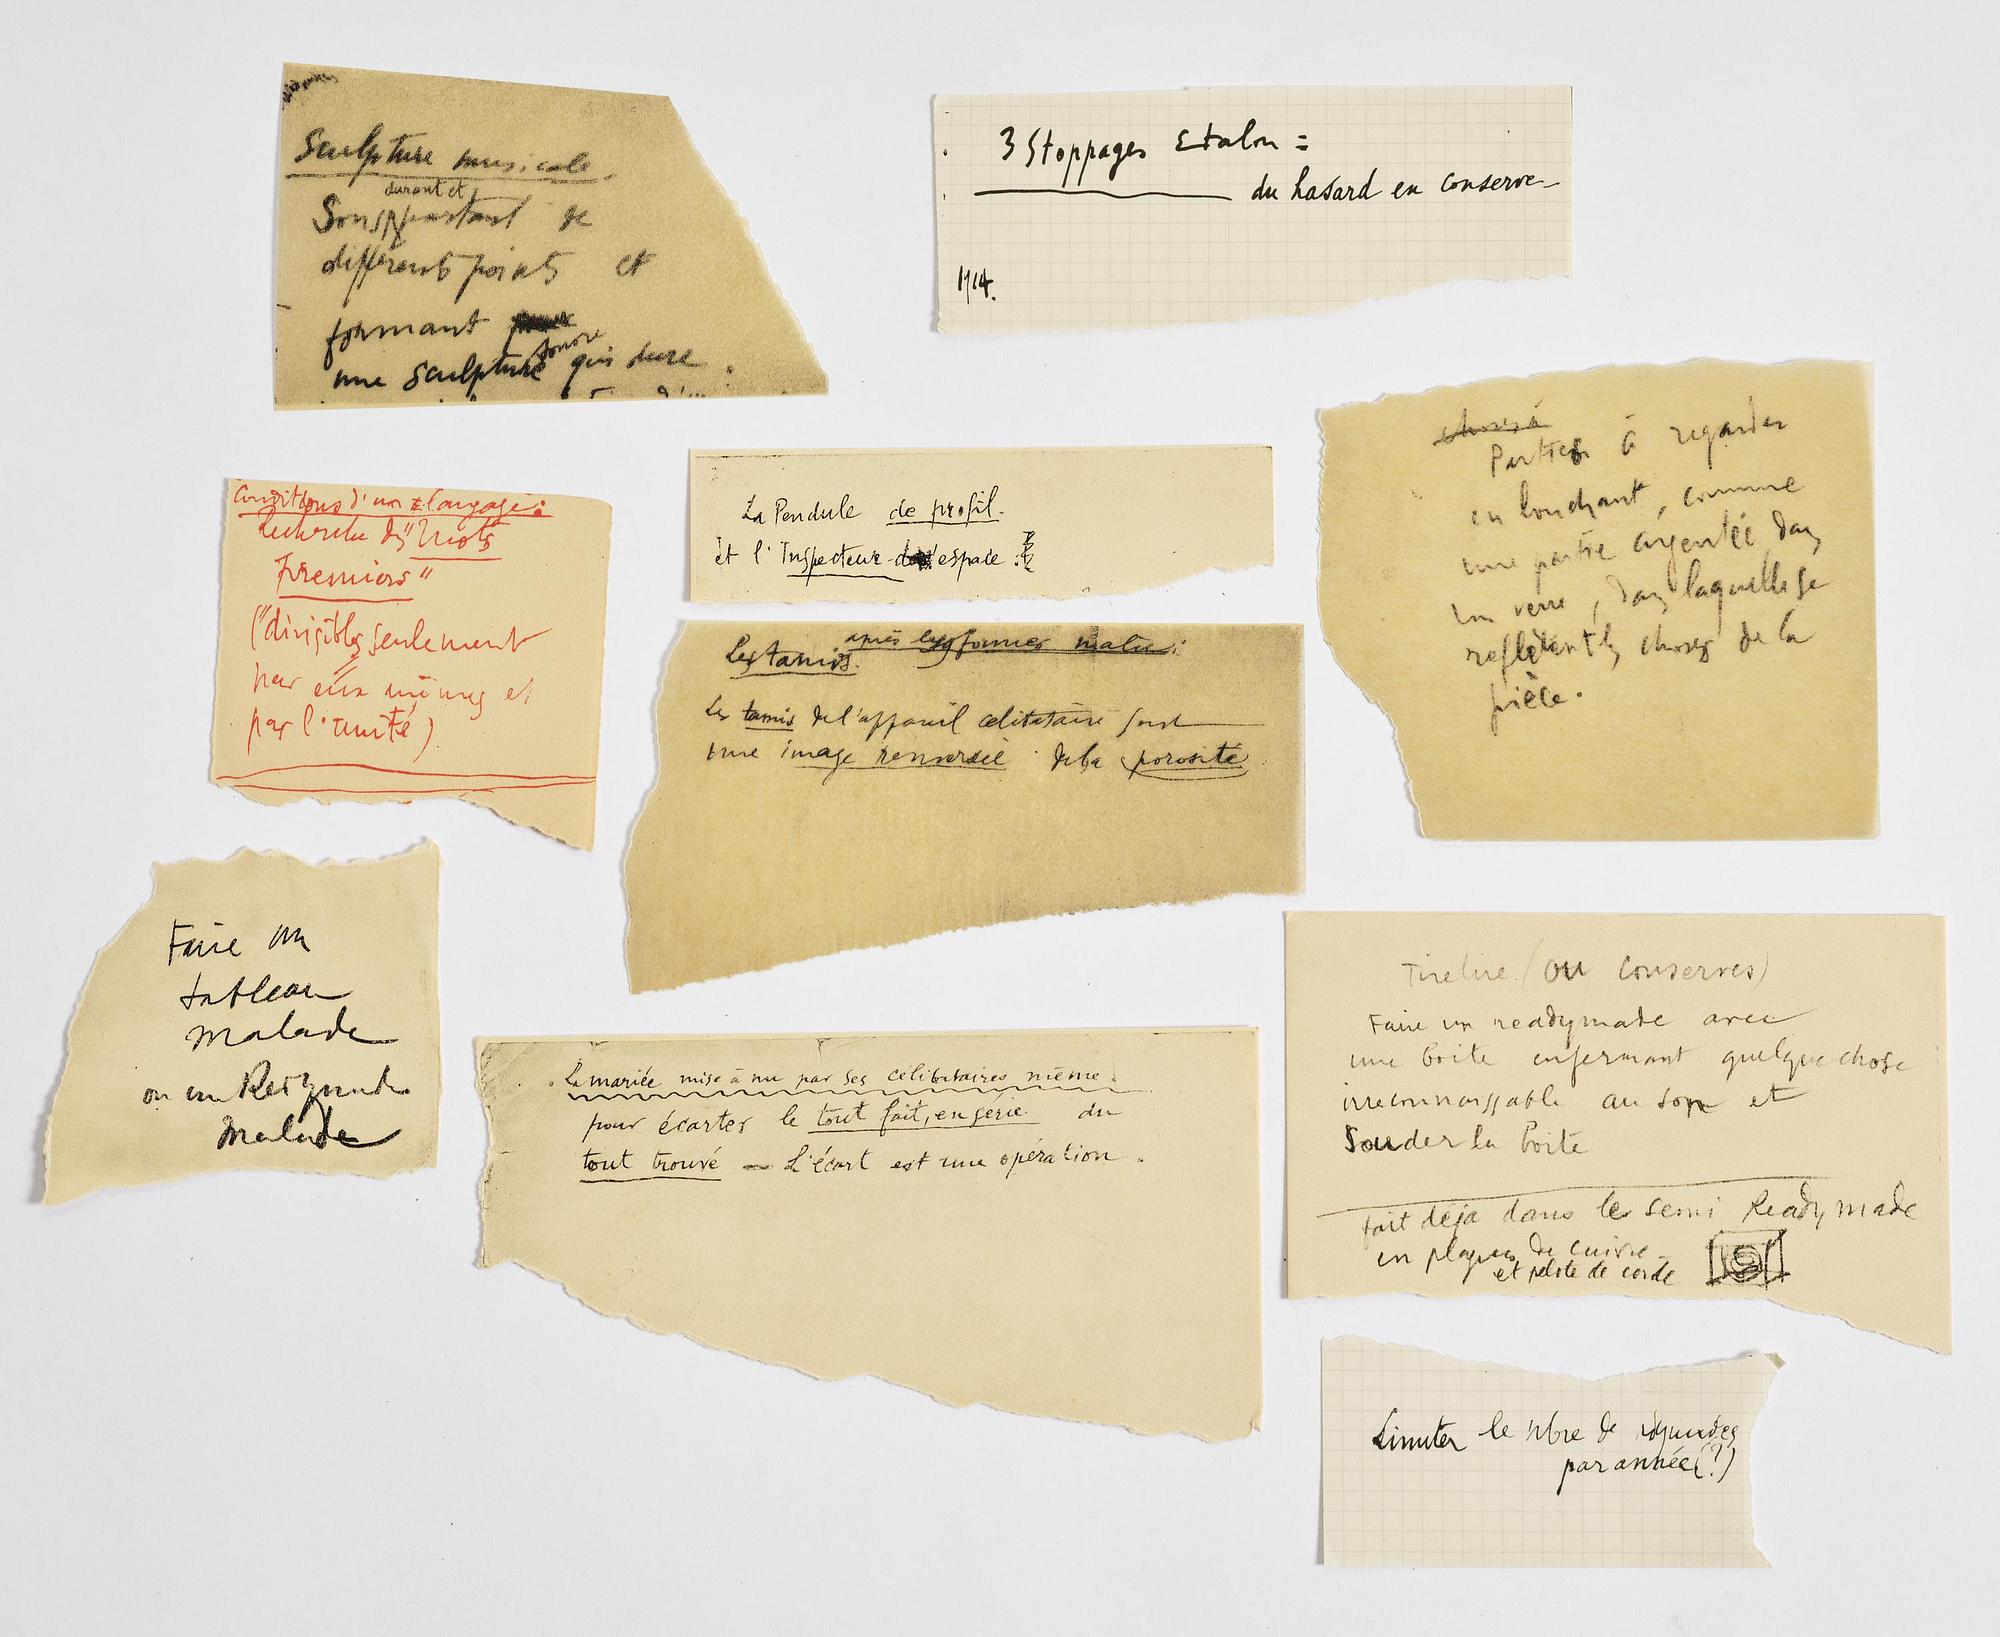 Sculpture musicale.
durant et
Sons partant de
différents points et
formant
sonore
une sculpture qui dure.
3 Stoppages Etalon =
du hasard en conserve
1914.
Parties à regarder
en louchant, comme
une partie argentée dans
un verre, dans laquelle se
reflètent les choses de la
pièce.
La Pendule de profil.
et l'Inspecteur d'espace.
Conditions d'un langage:
Recherche des "mots
premiers"
("divisibles seulement
par eux mêmes et
par l'unité)
Les tamis.
après les formes
Les tamis de l'appareil célibataire sont
une image renversée de la porosité
Faire un
tableau
malade
ou un Readymade
malade
La mariée mise à nu par ses célibataires même.
pour écarter le tout fait, en série du
tout trouvé – L'écart est une opération.
Tirelire (ou conserves)
Faire un readymade avec
une boite enfermant quelquechose
irreconnaissable au son et
Souder la boite
fait déja dans le semi Readymade
en plaques de cuivre
et pelote de corde
Limiter le nbre de rdymades
par année (?)